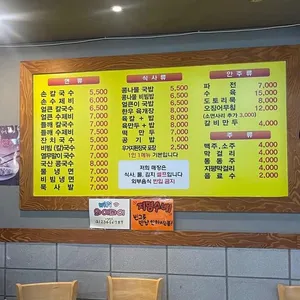 면 류
손 칼 국 수 5,500
손 수 제 비 6,000
얼큰 칼국수 6,000
얼큰 수제비 6,500
들깨 칼국수 7,000
들깨 수제비 7,500
잔 치 국 수 5,000
비빔 (칼)국수
열무말이국수 7,000
국산 콩국수 8,000
물 냉 면 7,000
비 빔 냉 면 7,000
묵 사 발 7,000
식 사 류
콩나물 국밥 5,500
콩나물 비빔밥 6,500
얼큰이 국밥 6,500
한우 육개장 8,000
육 칼 + 밥 8,000
육만두 + 밥 8,000
떡 만 두 7,000
공 기 밥 1,000
2,500
1인 1메뉴 기본입니다
저희 매장은
식사, 물, 김치 셀프입니다
외부음식 반입 금지
안 주 류
파 전 7,000
수 육 15,000
도 토 리 묵 8,000
오징어무침 12,000
(소면사리 추가 3,000)
갈 비 만 두 4,000
주 류
맥주, 소주 4,000
막 걸 리 3,000
동 동 주 5,000
지평막걸리 4,000
음 료 수 2,000